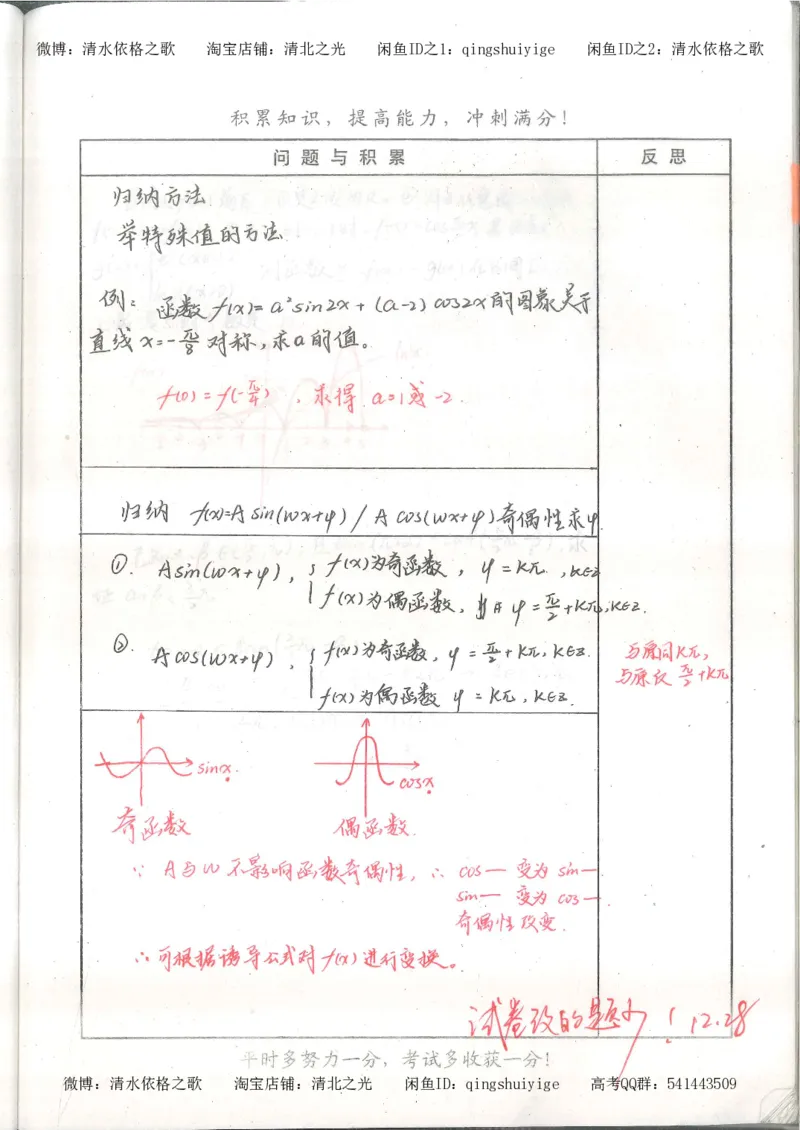 微博：清水依格之歌 淘宝店铺：清北之光 闲鱼ID之1：qingshuiyige 闲鱼ID之2：清水依格之歌
积累知识，提高能力，冲刺满分！
问题与积累 反思
归纳方法
举特殊值的方法
例：函数f(x)=a²sin2x+(a-2)cos2x的图象关于
直线x=-π/8对称，求a的值。
f(0)=f(-π/4)，求得a=1或-2.
归纳 f(x)=Asin(wx+φ)/Acos(wx+φ)奇偶性求φ.
①. Asin(wx+φ)，{ f(x)为奇函数，φ=kπ，k∈z
f(x)为偶函数，φ=π/2+kπ，k∈z.
②. Acos(wx+φ)，{ f(x)为奇函数，φ=π/2+kπ，k∈z.
f(x)为偶函数 φ=kπ，k∈z.
与原同kπ，
与原反π/2+kπ
sinx. cosx
奇函数 偶函数.
∵ A与w不影响函数奇偶性，∴ cos— 变为 sin—
sin— 变为 cos—
奇偶性改变.
∴可根据诱导公式对f(x)进行变换。
试卷改的题少！12.28
平时多努力一分，考试多收获一分！
微博：清水依格之歌 淘宝店铺：清北之光 闲鱼ID：qingshuiyige 高考QQ群：541443509